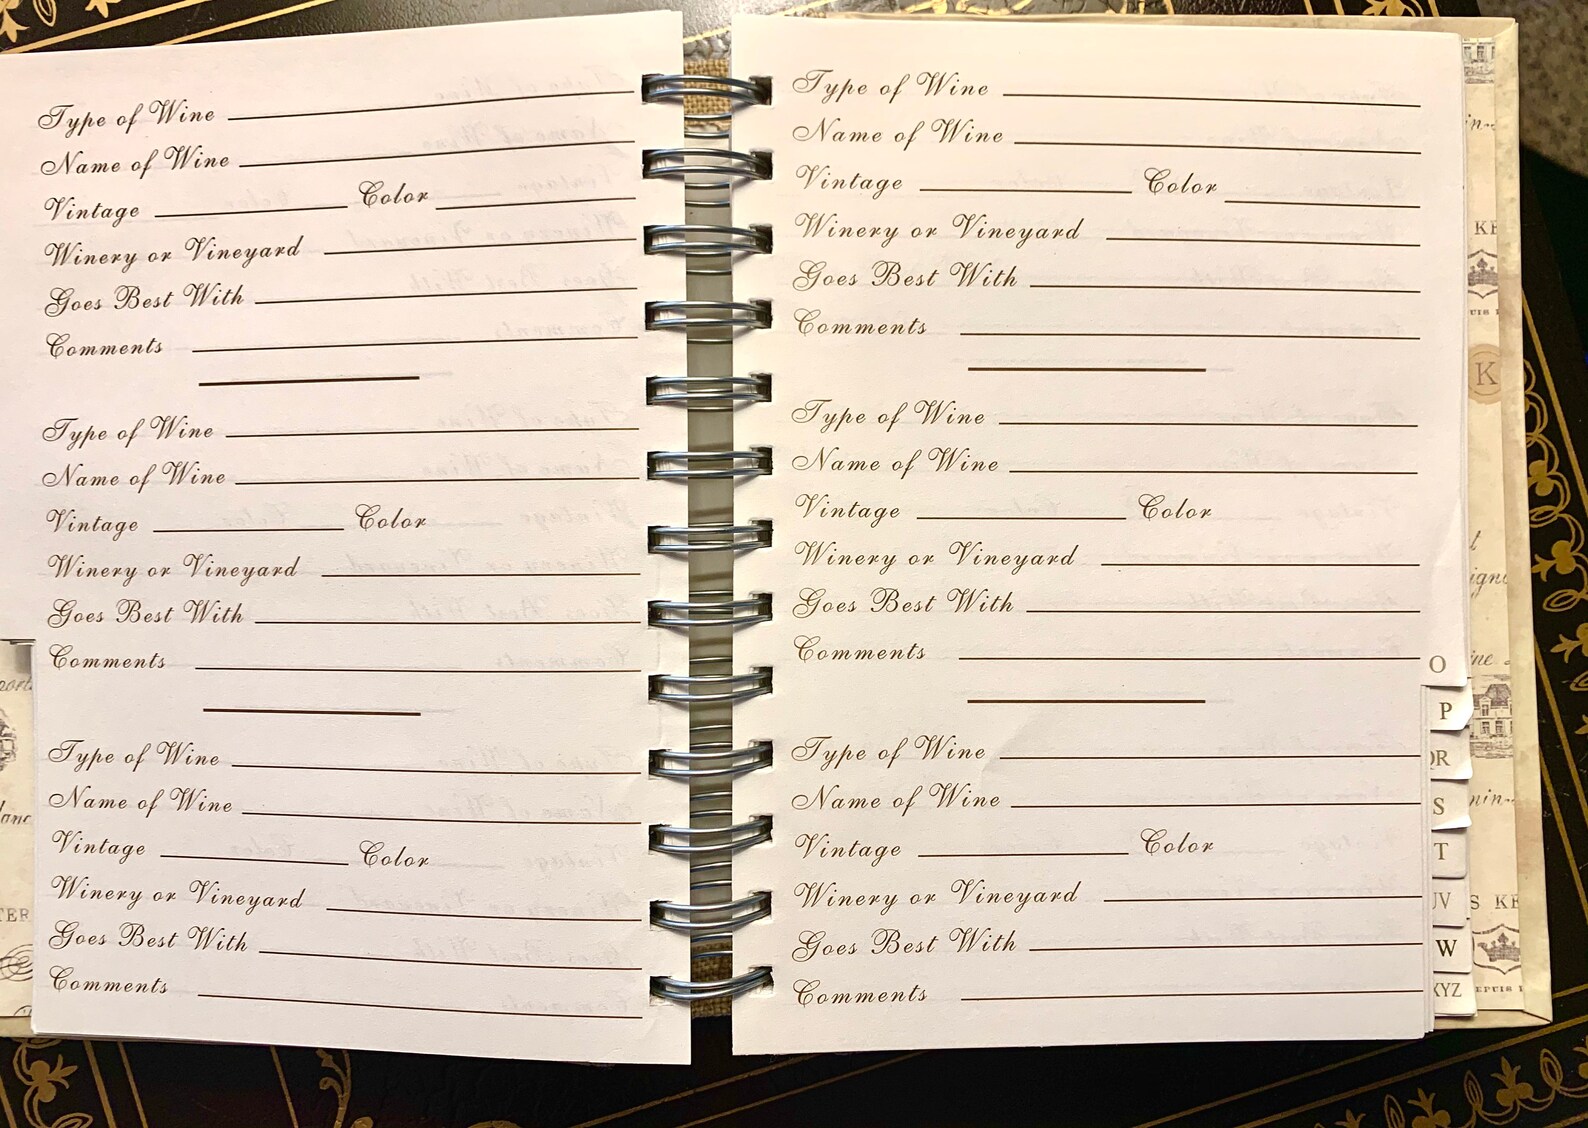 Type of Wine
Name of Wine
Vintage Color
Winery or Vineyard
Goes Best With
Comments
Type of Wine
Name of Wine
Vintage Color
Winery or Vineyard
Goes Best With
Comments
Type of Wine
Name of Wine
Vintage Color
Winery or Vineyard
Goes Best With
Comments
Type of Wine
Name of Wine
Vintage Color
Winery or Vineyard
Goes Best With
Comments
Type of Wine
Name of Wine
Vintage Color
Winery or Vineyard
Goes Best With
Comments
Type of Wine
Name of Wine
Vintage Color
Winery or Vineyard
Goes Best With
Comments
O
P
QR
S
T
UV
W
XYZ
K